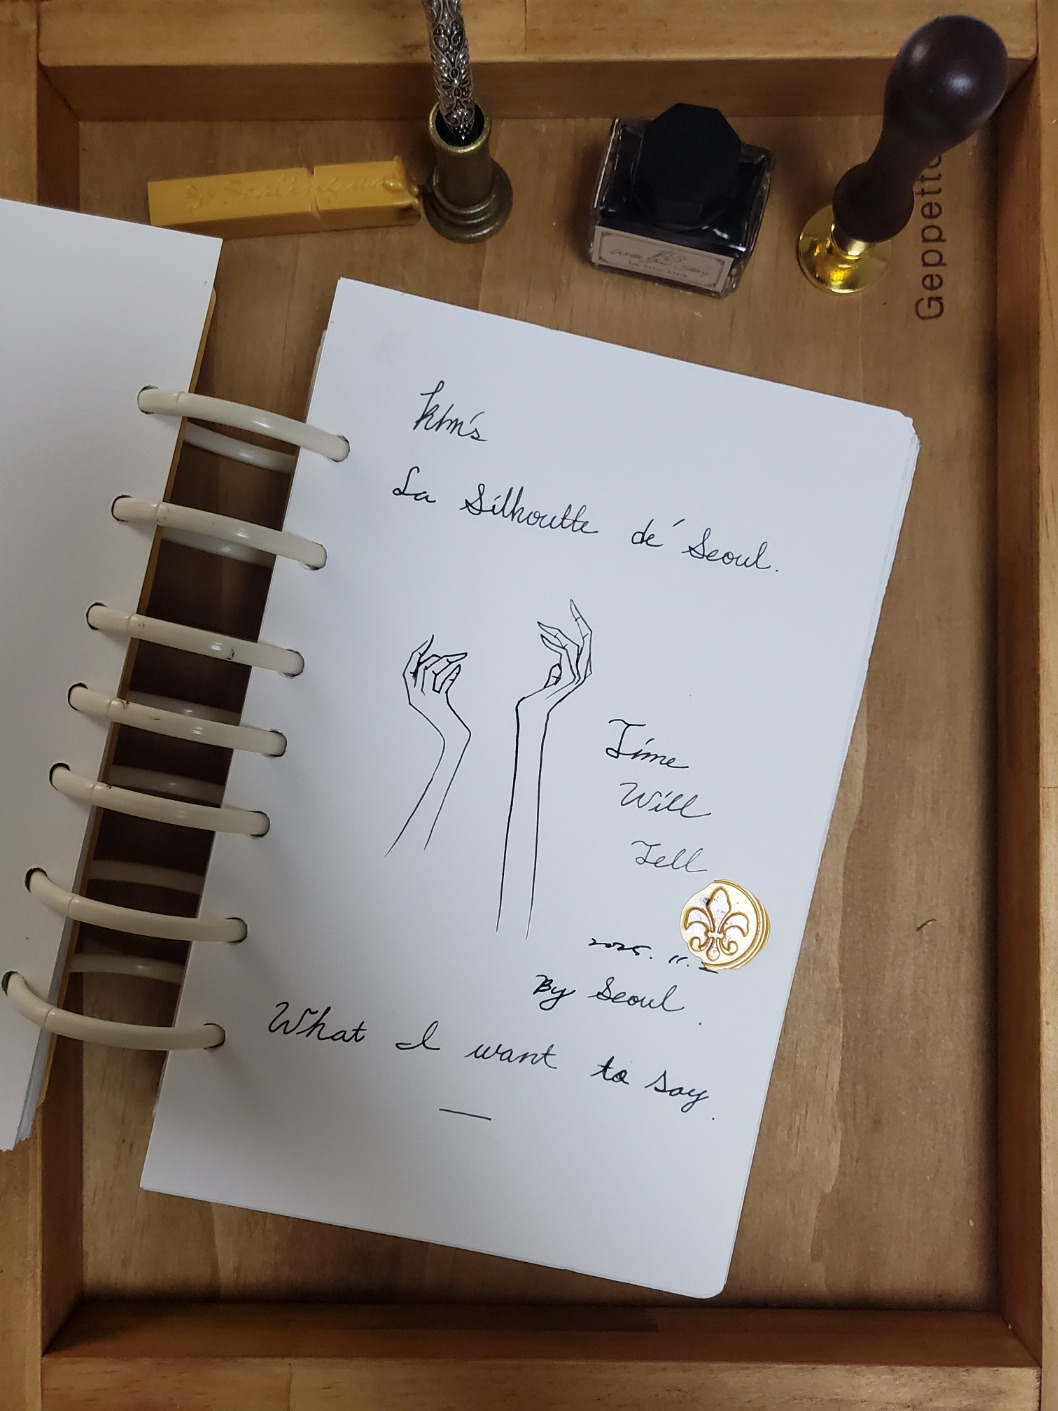 Geppetto
Kim's
La Silhoutte dé Seoul.
Time
Will
Tell
By Seoul.
What I want to say.